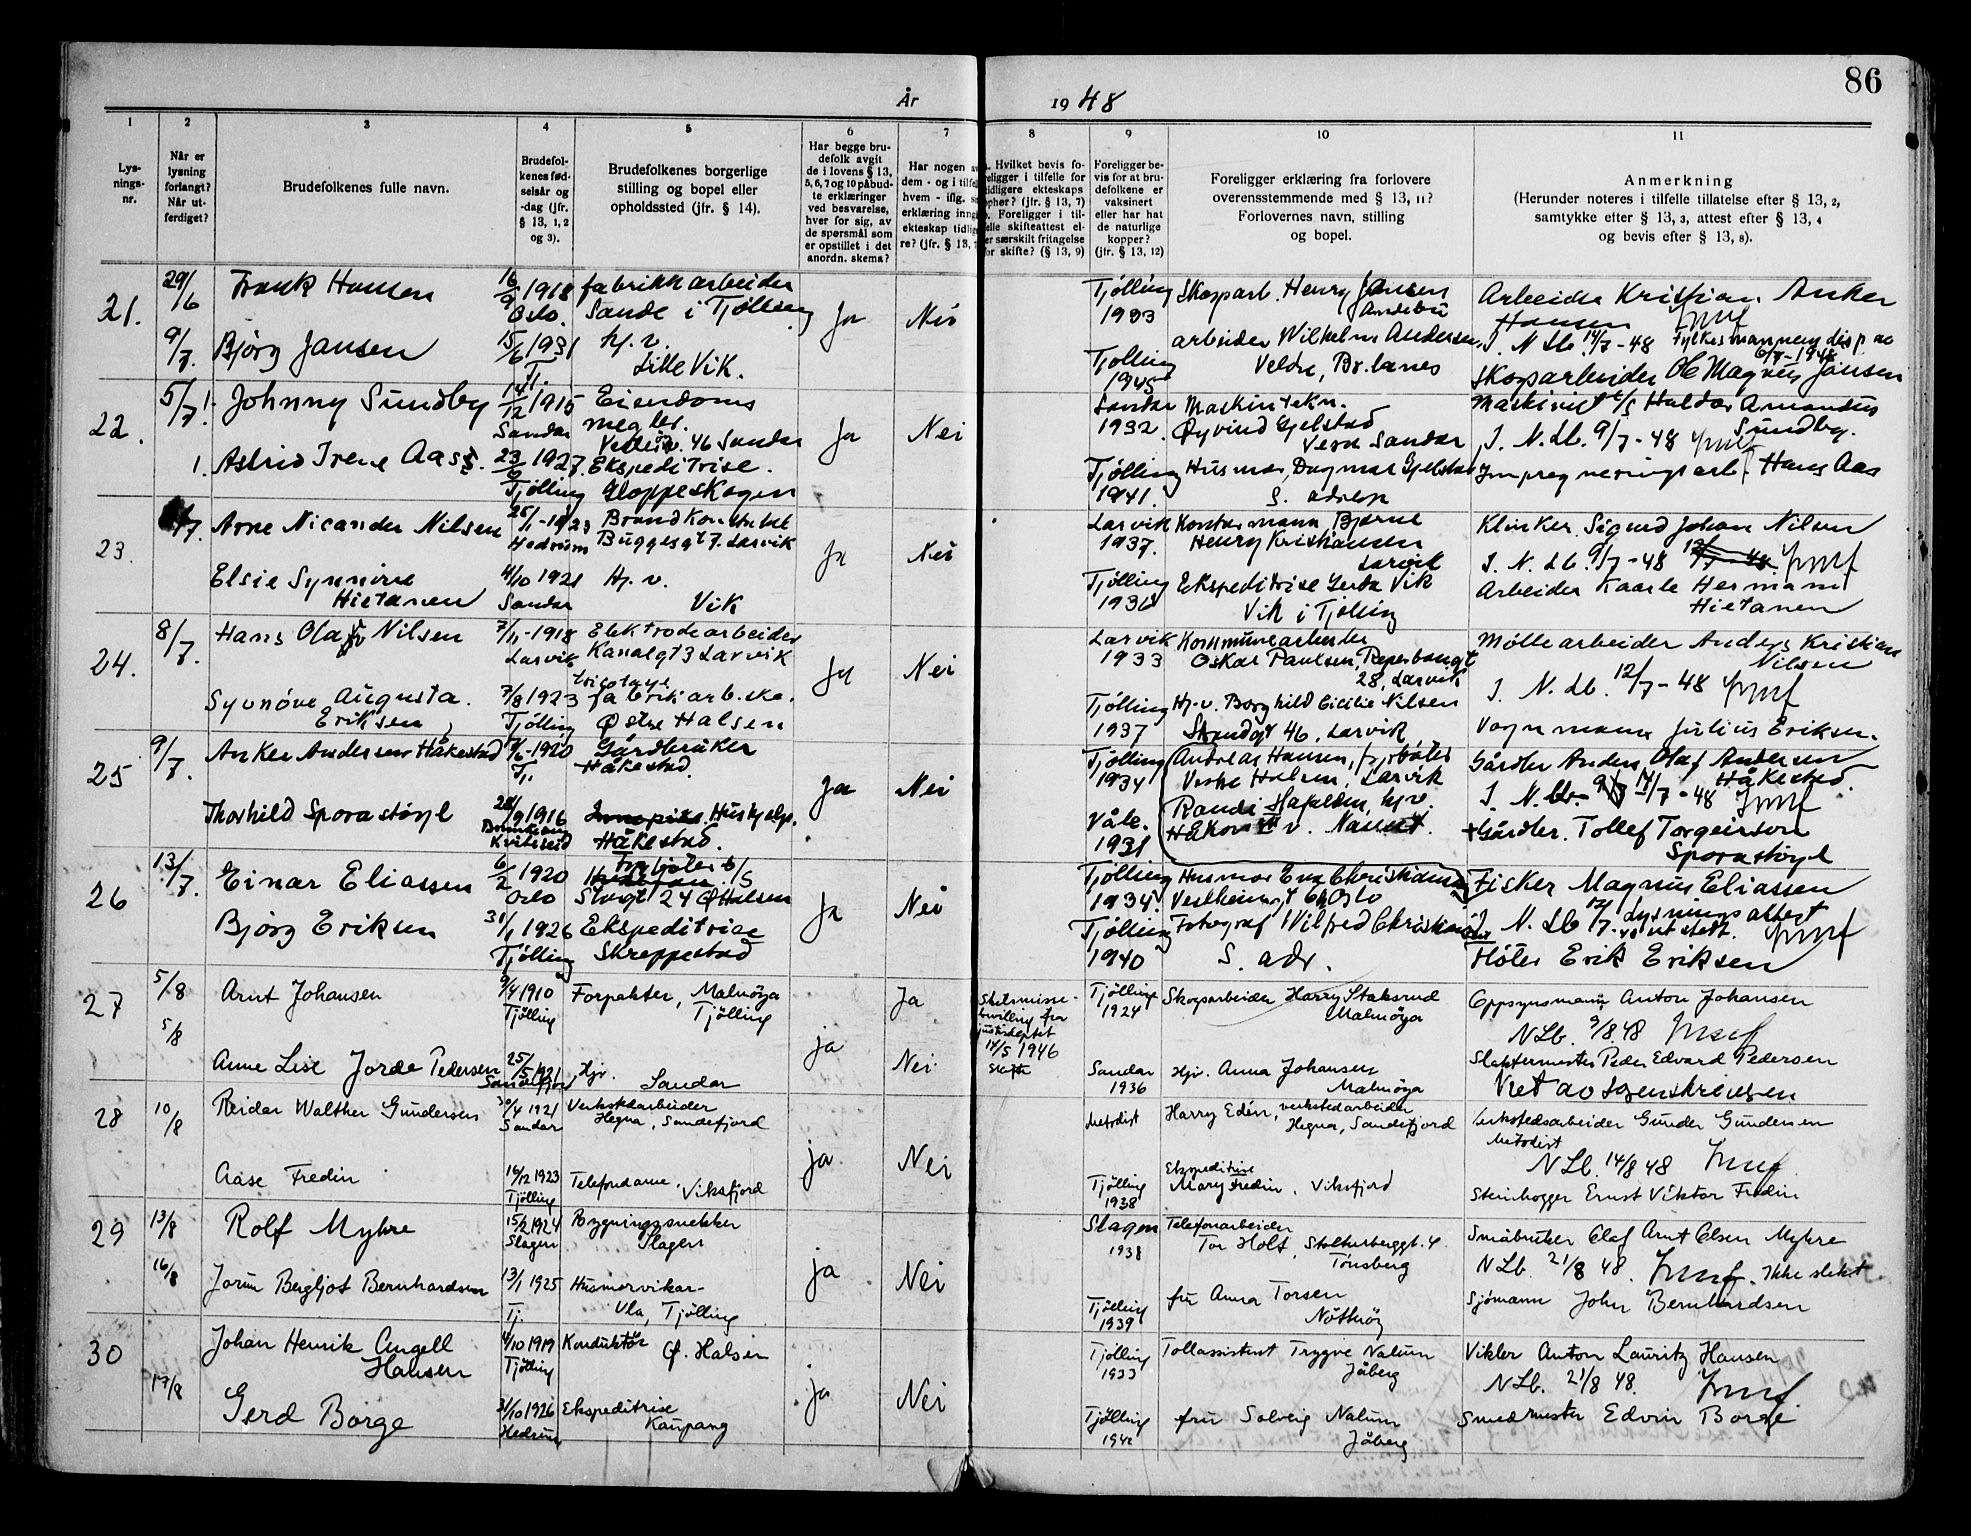 86
År 1948
1 2 3 4 5 6 7 8 9 10 11
Lys-
nings-
nr.
Når er
lysning
forlangt?
Når ut-
ferdiget?
Brudefolkenes fulle navn.
Brudefol-
kenes fød-
selsår og
-dag (jfr.
§ 13, 1, 2
og 3).
Brudefolkenes borgerlige
stilling og bopel eller
opholdssted (jfr. § 14).
Har begge bru-
defolk avgit
de i lovens § 13,
5, 6, 7 og 10 påbud-
te erklæringer
ved besvarelse,
hver for sig, av
de spørsmål som
er opstillet i det
anordn. skema?
Har nogen
dem - og i tilfel
hvem - iflg.
erklæring inng
ekteskap tidlig
re? (jfr. § 13,
Hvilket bevis fo-
religger i tilfelle for
tidligere ekteskaps
ophør? (jfr. § 13, 7)
Foreligger i til-
felle skifteattest el-
ler særskilt fritagelse
for skifte? (§ 13, 9)
Foreligger be-
vis for at bru-
defolkene er
vaksinert
eller har hat
de naturlige
kopper?
(jfr. § 13, 12)
Foreligger erklæring fra forlovere
overensstemmende med § 13, 11?
Forlovernes navn, stilling
og bopel.
Anmerkning
(Herunder noteres i tilfelle tillatelse efter § 13, 2,
samtykke efter § 13, 3, attest efter § 13, 4
og bevis efter § 13, 8).
21. 29/6 Frank Hansen 16/9 1918 Oslo. fabrikkarbeider
Sande i Tjølling Ja Nei Tjølling 1933 Skogsarb. Henry Jansen
Andebu
Arbeider Kristian Anker
Hansen
9/7. Bjørg Jansen 15/6 1931 Tj. hj. v.
Lille Vik. Tjølling 1945 arbeider Wilhelm Andersen,
Veldre, Br.lanes
J. N. Lb. 14/7 - 48 Fylkesmannens disp av
6/7 - 1948
Skogsarbeider Ole Magnus Jansen
22. 5/7 1. Johnny Sundby 14/12 1915 Sandar Eiendoms
megler.
46 Sandar Ja Nei Sandar 1932. Maskintekn.
Øyvind Gjelstad
Vesrd Sandar
Maskinist Haldor Amandus
Sundby.
J. N. Lb. 9/7 - 48
1. Astrid Irene Aass. 23/6 1927. Tjølling Ekspeditrise.
Gloppeskogen Tjølling 1941. Husmor, Dagmar Gjelstad
S. adresse
Impregneringsarb. Hans Aas
23. /7. Arne Nicander Nilsen 25/1 - 1923 Hedrum Brandkonstabel
Buggesgt 7. Larvik Ja Nei Larvik 1937. Kontormann Bjarne
Henry Kristiansen
Larvik
Klinker Sigurd Johan Nilsen
J. N. Lb. 9/7 - 48
Elsie Synnøve
Hietanen 4/10 1921 Sandar Hj. v.
Vik Tjølling 1936 Ekspeditrise Gerda Vik
Vik i Tjølling
Arbeider Kaarle Hermann
Hietanen
24. 8/7. Hans Olaf Nilsen 7/11 - 1918 Larvik Elektrodearbeider
Kanalgt 3 Larvik Ja Nei Larvik 1933 Kommunearbeider
Oskar Paulsen, Reperbangt
28, Larvik
Mølle arbeider Anders Kristian
Nilsen
J. N. Lb. 12/7 - 48
Synnøve Augusta.
Eriksen 7/8 1923 Tjølling tricotage
fabrikarb.ske.
Østre Halsen Tjølling 1937 Hj. v. Borghild Cicilie Nilsen
Strandgt 46, Larvik
Vognmann Julius Eriksen.
25 9/7. Anker Andersen Håkestad /6 - 1920 Tj. Gårdbruker
Håkestad Ja Nei Tjølling 1934 Andreas Hansen, fyrbøter
Vestre Halsen, Larvik
Gårdbr Anders Olaf Andersen
Håkestad
J. N. Lb. 17/7 - 48
Thorhild Sporastøyl 28/9 1916 Kviteseid Hushjelp.
Håkestad. Våle. 1931 Randi Hafelden, hj.v.
Håkon VII v. Nanset.
Gårdbr. Tollef Torgeirson
Sporastøyl
26 13/7. Einar Eliassen 6/2 1920 Oslo Fyrbøter
Stagt 24 Ø Halsen Ja Nei Tjølling 1934. Husmor Eva Christiansen
Vestheimgt 6A Oslo
Fisker Magnus Eliassen
J. N. Lb. 17/7 - 48 Lysningsattest
utstedt.
Bjørg Eriksen 31/1 1926 Tjølling Ekspeditrise
Skreppestad Tjølling 1940 Fotograf Wilfred Christiansen
S. adr.
Fløter Erik Eriksen
27 5/8 Arnt Johansen 9/4 1910 Tjølling Forpakter, Malmøya
Tjølling ja Ja Skilsmisse-
bevilling fra
justisdeptet
14/5 1946
Skifte Tjølling 1924 Skogsarbeider Harry Staksrud
Malmøya
Oppsynsmann Anton Johansen
NLb. 9/8.48
5/8 Anne Lise Jorde Pedersen 25/5 1921 Sandefjord Hjv. Sandar Nei Sandar 1936 Hjv. Anna Johansen
Malmøya
Slaktermester Peder Edvard Pedersen
28 10/8 Reidar Walther Gundersen 30/4 1921 Sandar Verkstedarbeider
Hegna, Sandefjord ja Nei Metodist Harry Edén, verkstedarbeider
Hegna, Sandefjord
Verkstedsarbeider Gunder Gundersen
Metodist
NLb. 14/8 48
Aase Fredin 16/12 1923 Tjølling Telefondame, Viksfjord Tjølling 1938 Ekspeditrise
Mary Fredin, Viksfjord
Steinhogger Ernst Viktor Fredin
29 13/8 Rolf Myhre 15/2 1924 Slagen Bygningssnekker
Slagen ja Nei Slagen 1938 Telefonarbeider
Tor Holt, Stoltenberggt. 4
Tønsberg
Småbruker Olaf Arnt Olsen Myhre
NLb 21/8 48. Ikke slekt
16/8 Jorun Bergljot Bernhardsen 13/1 1925 Tj. Husmorvikar
Ula, Tjølling Tjølling 1939 fru Anna Torsen
Nøtterøy
Sjømann John Bernhardsen
30 Johan Henrik Angell
Hansen 4/10 1919 Tjølling Konduktør Ø. Halsen ja Nei Tjølling 1933 Tollassistent Trygve Nalum
Jåberg
Vikler Anton Lauritz Hansen
NLb. 21/8 48.
17/8 Gerd Borge 31/10 1926 Hedrum Ekspeditrise
Kaupang Tjølling 1942 fru Solveig Nalum
Jåberg
Smedmester Edvin Borge